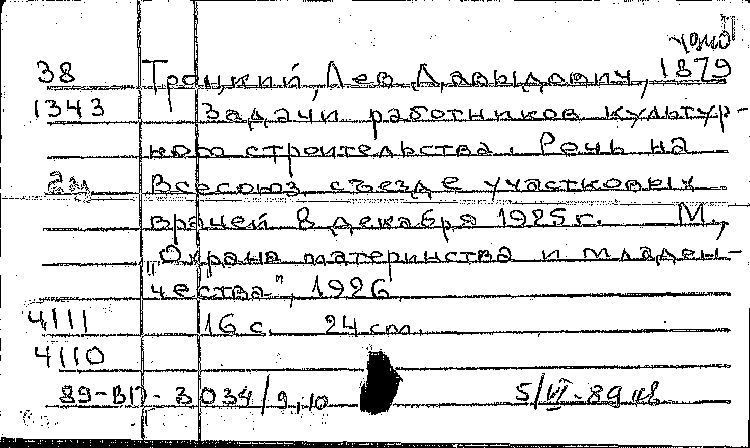 38 Троцкий, Лев Давыдович, 1879
1343 Задачи работников культур-
ного строительства. Речь на
Всесоюз. съезде участковых
врачей 8 декабря 1925г. М.,
"Охрана материнства и младен-
чества", 1926
4111 16 с. 24 cm.
4110
89-ВП-3034/9,10 5/VI-89